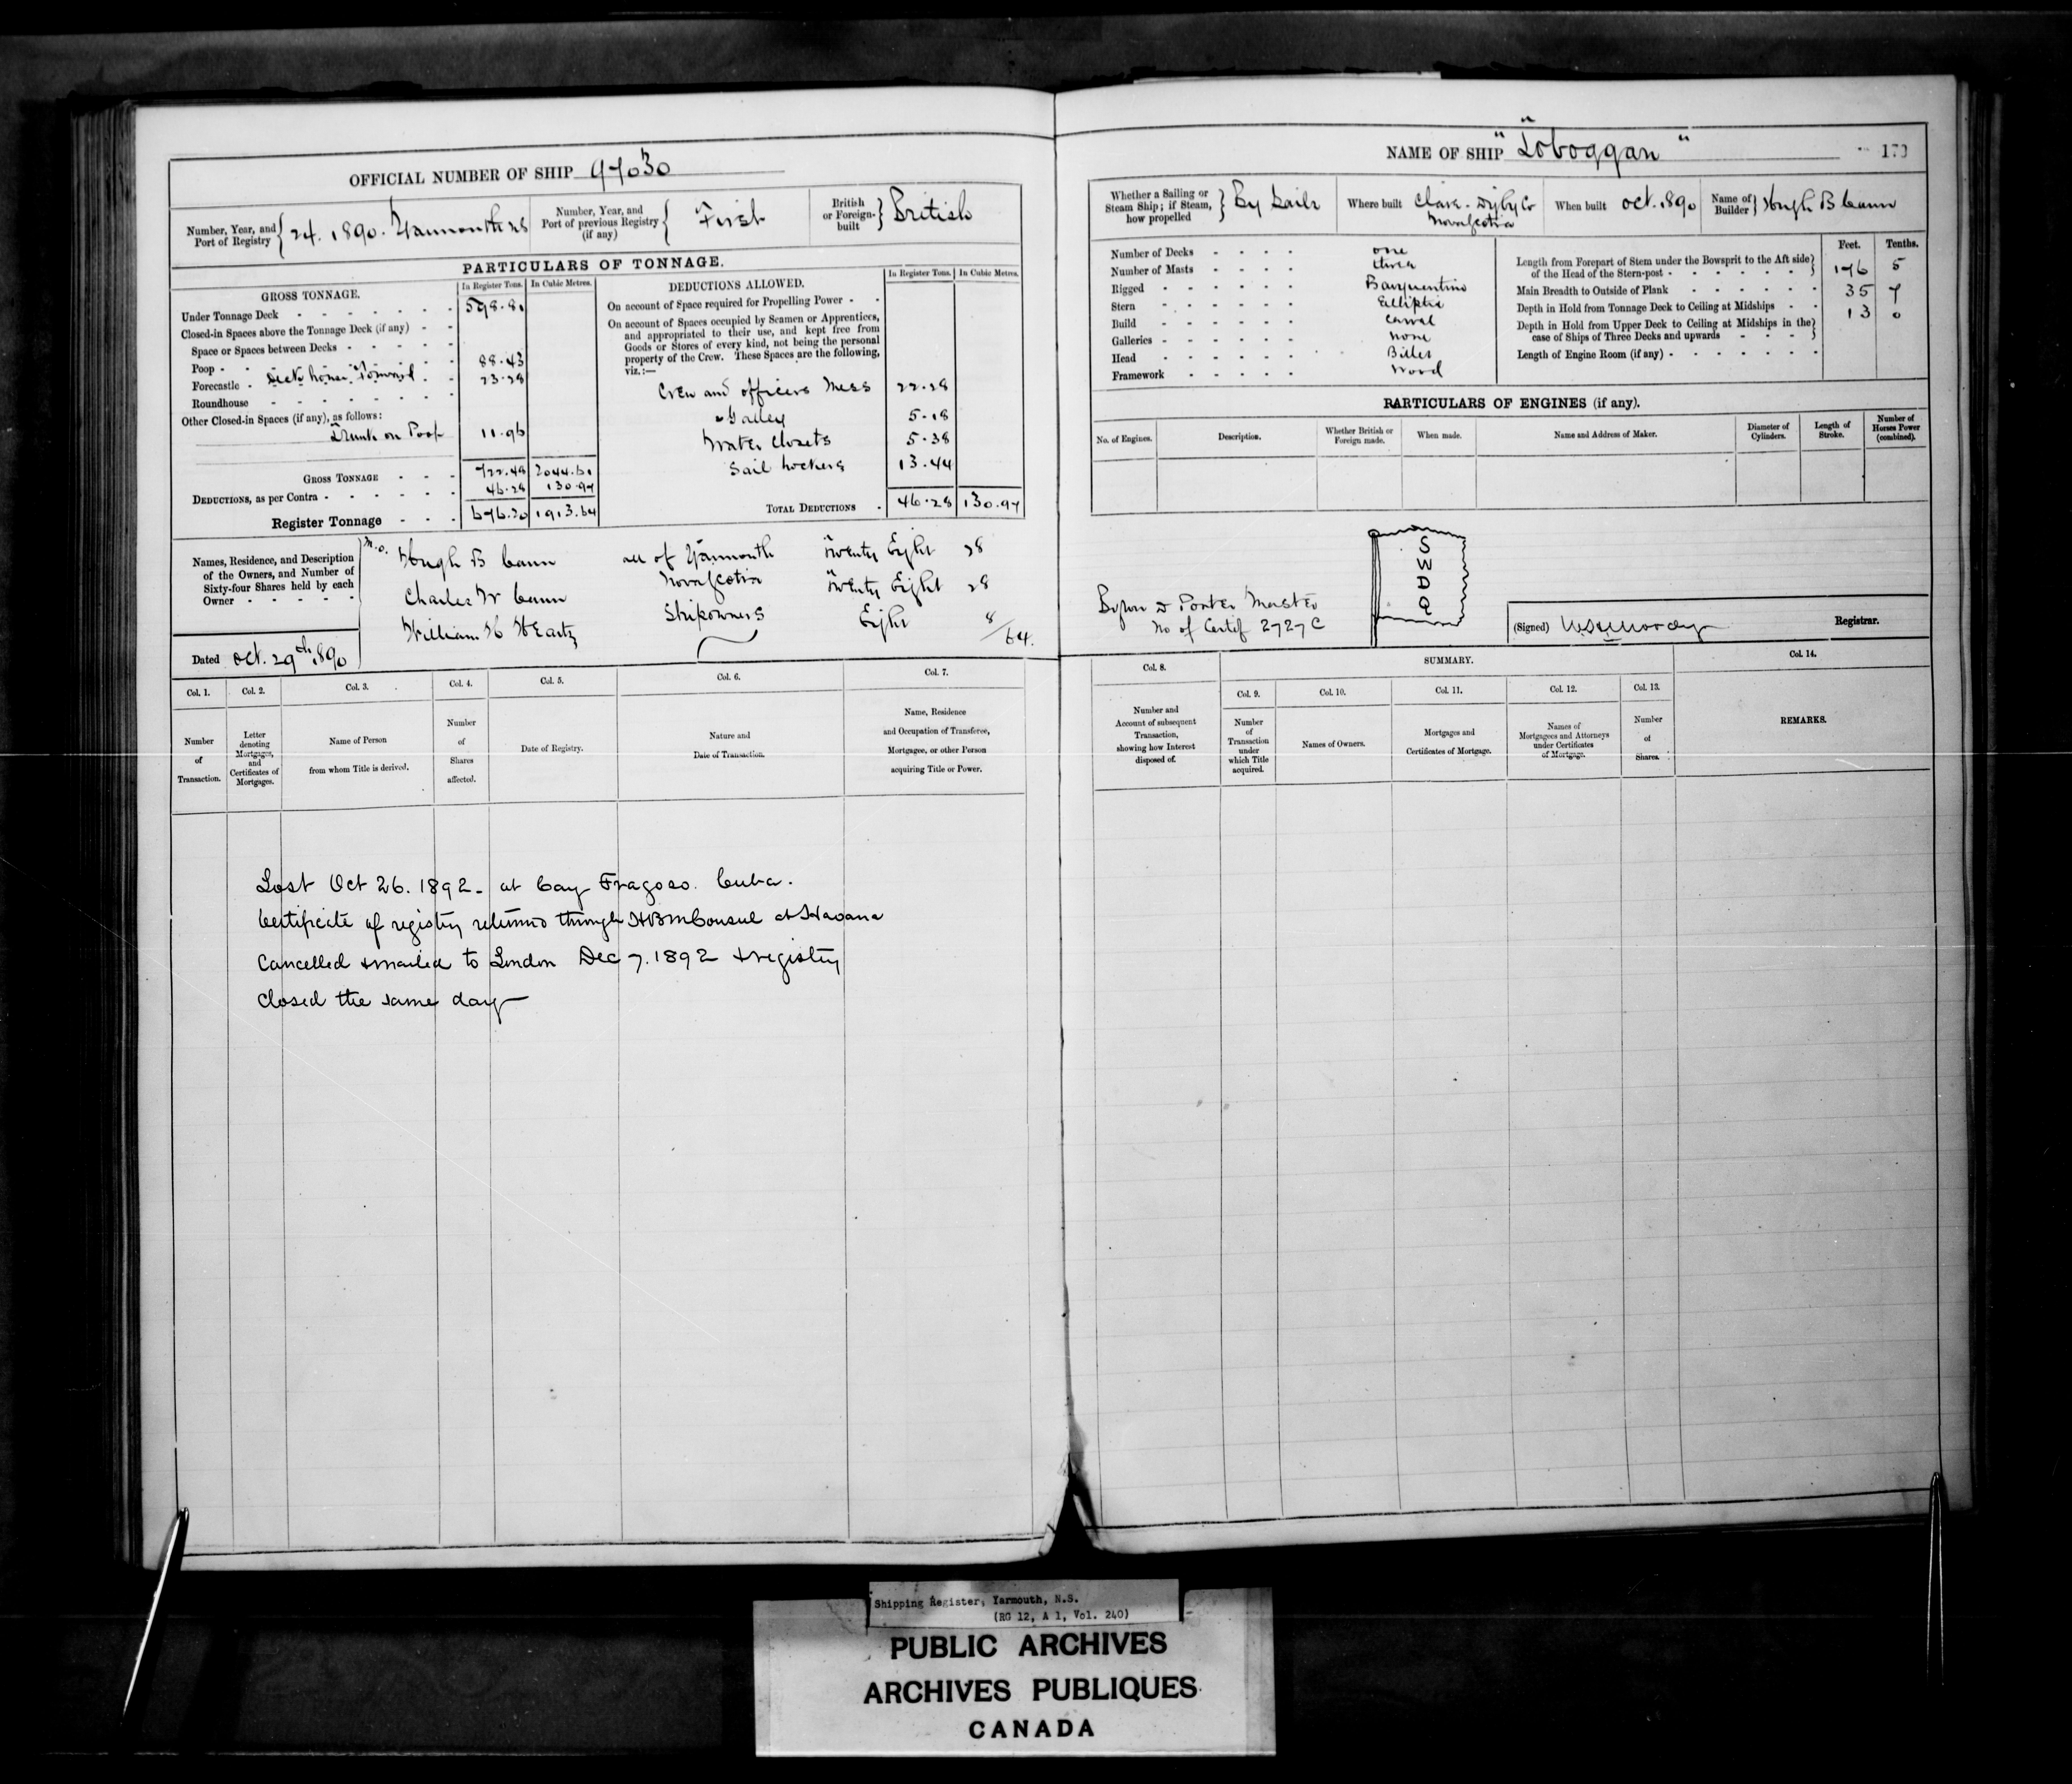 OFFICIAL NUMBER OF SHIP 97030
Number, Year, and Port of Registry { 24. 1890. Yarmouth NS
Number, Year, and Port of previous Registry (if any) { First
British or Foreign-built } British
PARTICULARS OF TONNAGE.
GROSS TONNAGE. In Register Tons. In Cubic Metres.
Under Tonnage Deck 598.81
Closed-in Spaces above the Tonnage Deck (if any)
Space or Spaces between Decks
Poop 88.43
Forecastle Deck house Forward 23.28
Roundhouse
Other Closed-in Spaces (if any), as follows:
Trunk on Poop 11.96
GROSS TONNAGE 722.48 2044.61
DEDUCTIONS, as per Contra 46.28 130.97
Register Tonnage 676.20 1913.64
DEDUCTIONS ALLOWED. In Register Tons. In Cubic Metres.
On account of Space required for Propelling Power
On account of Spaces occupied by Seamen or Apprentices,
and appropriated to their use, and kept free from
Goods or Stores of every kind, not being the personal
property of the Crew. These Spaces are the following,
viz.:—
Crew and officers Mess 22.28
Galley 5.18
Water Closets 5.38
Sail Lockers 13.44
TOTAL DEDUCTIONS 46.28 130.97
Names, Residence, and Description
of the Owners, and Number of
Sixty-four Shares held by each
Owner
M.O. Hugh B Cann all of Yarmouth Twenty Eight 28
Charles W Cann Nova Scotia Twenty Eight 28
William H Heartz Shipowners Eight 8/64.
Dated Oct. 29th 1890
Col. 1. Col. 2. Col. 3. Col. 4. Col. 5. Col. 6. Col. 7.
Number of Transaction.
Letter denoting Mortgages, and Certificates of Mortgages.
Name of Person from whom Title is derived.
Number of Shares affected.
Date of Registry.
Nature and Date of Transaction.
Name, Residence and Occupation of Transferee, Mortgagee, or other Person acquiring Title or Power.
Lost Oct 26. 1892 - at Cay Fragoso. Cuba.
Certificate of registry returned through HBM Consul at Havana
Cancelled & mailed to London Dec 7. 1892 & registry
closed the same day
NAME OF SHIP "Toboggan"
173
Whether a Sailing or Steam Ship; if Steam, how propelled } By Sails
Where built Clare. Digby Co Nova Scotia
When built Oct. 1890
Name of Builder } Hugh B Cann
Number of Decks one
Number of Masts three
Rigged Barquentine
Stern Elliptic
Build Carvel
Galleries none
Head Billet
Framework Wood
Feet. Tenths.
Length from Forepart of Stem under the Bowsprit to the Aft side
of the Head of the Stern-post 176 5
Main Breadth to Outside of Plank 35 7
Depth in Hold from Tonnage Deck to Ceiling at Midships 13 0
Depth in Hold from Upper Deck to Ceiling at Midships in the
case of Ships of Three Decks and upwards
Length of Engine Room (if any)
PARTICULARS OF ENGINES (if any).
No. of Engines. Description. Whether British or Foreign made. When made. Name and Address of Maker. Diameter of Cylinders. Length of Stroke. Number of Horses Power (combined).
S
W
D
Q
Byron D Porter Master
No of Certif 2727 C
(Signed) Registrar.
Col. 8. SUMMARY. Col. 14.
Col. 9. Col. 10. Col. 11. Col. 12. Col. 13.
Number and Account of subsequent Transaction, showing how Interest disposed of.
Number of Transaction under which Title acquired.
Names of Owners.
Mortgages and Certificates of Mortgage.
Names of Mortgagees and Attorneys under Certificates of Mortgage.
Number of Shares.
REMARKS.
Shipping Register, Yarmouth, N.S.
(RG 12, A 1, Vol. 240)
PUBLIC ARCHIVES
ARCHIVES PUBLIQUES
CANADA